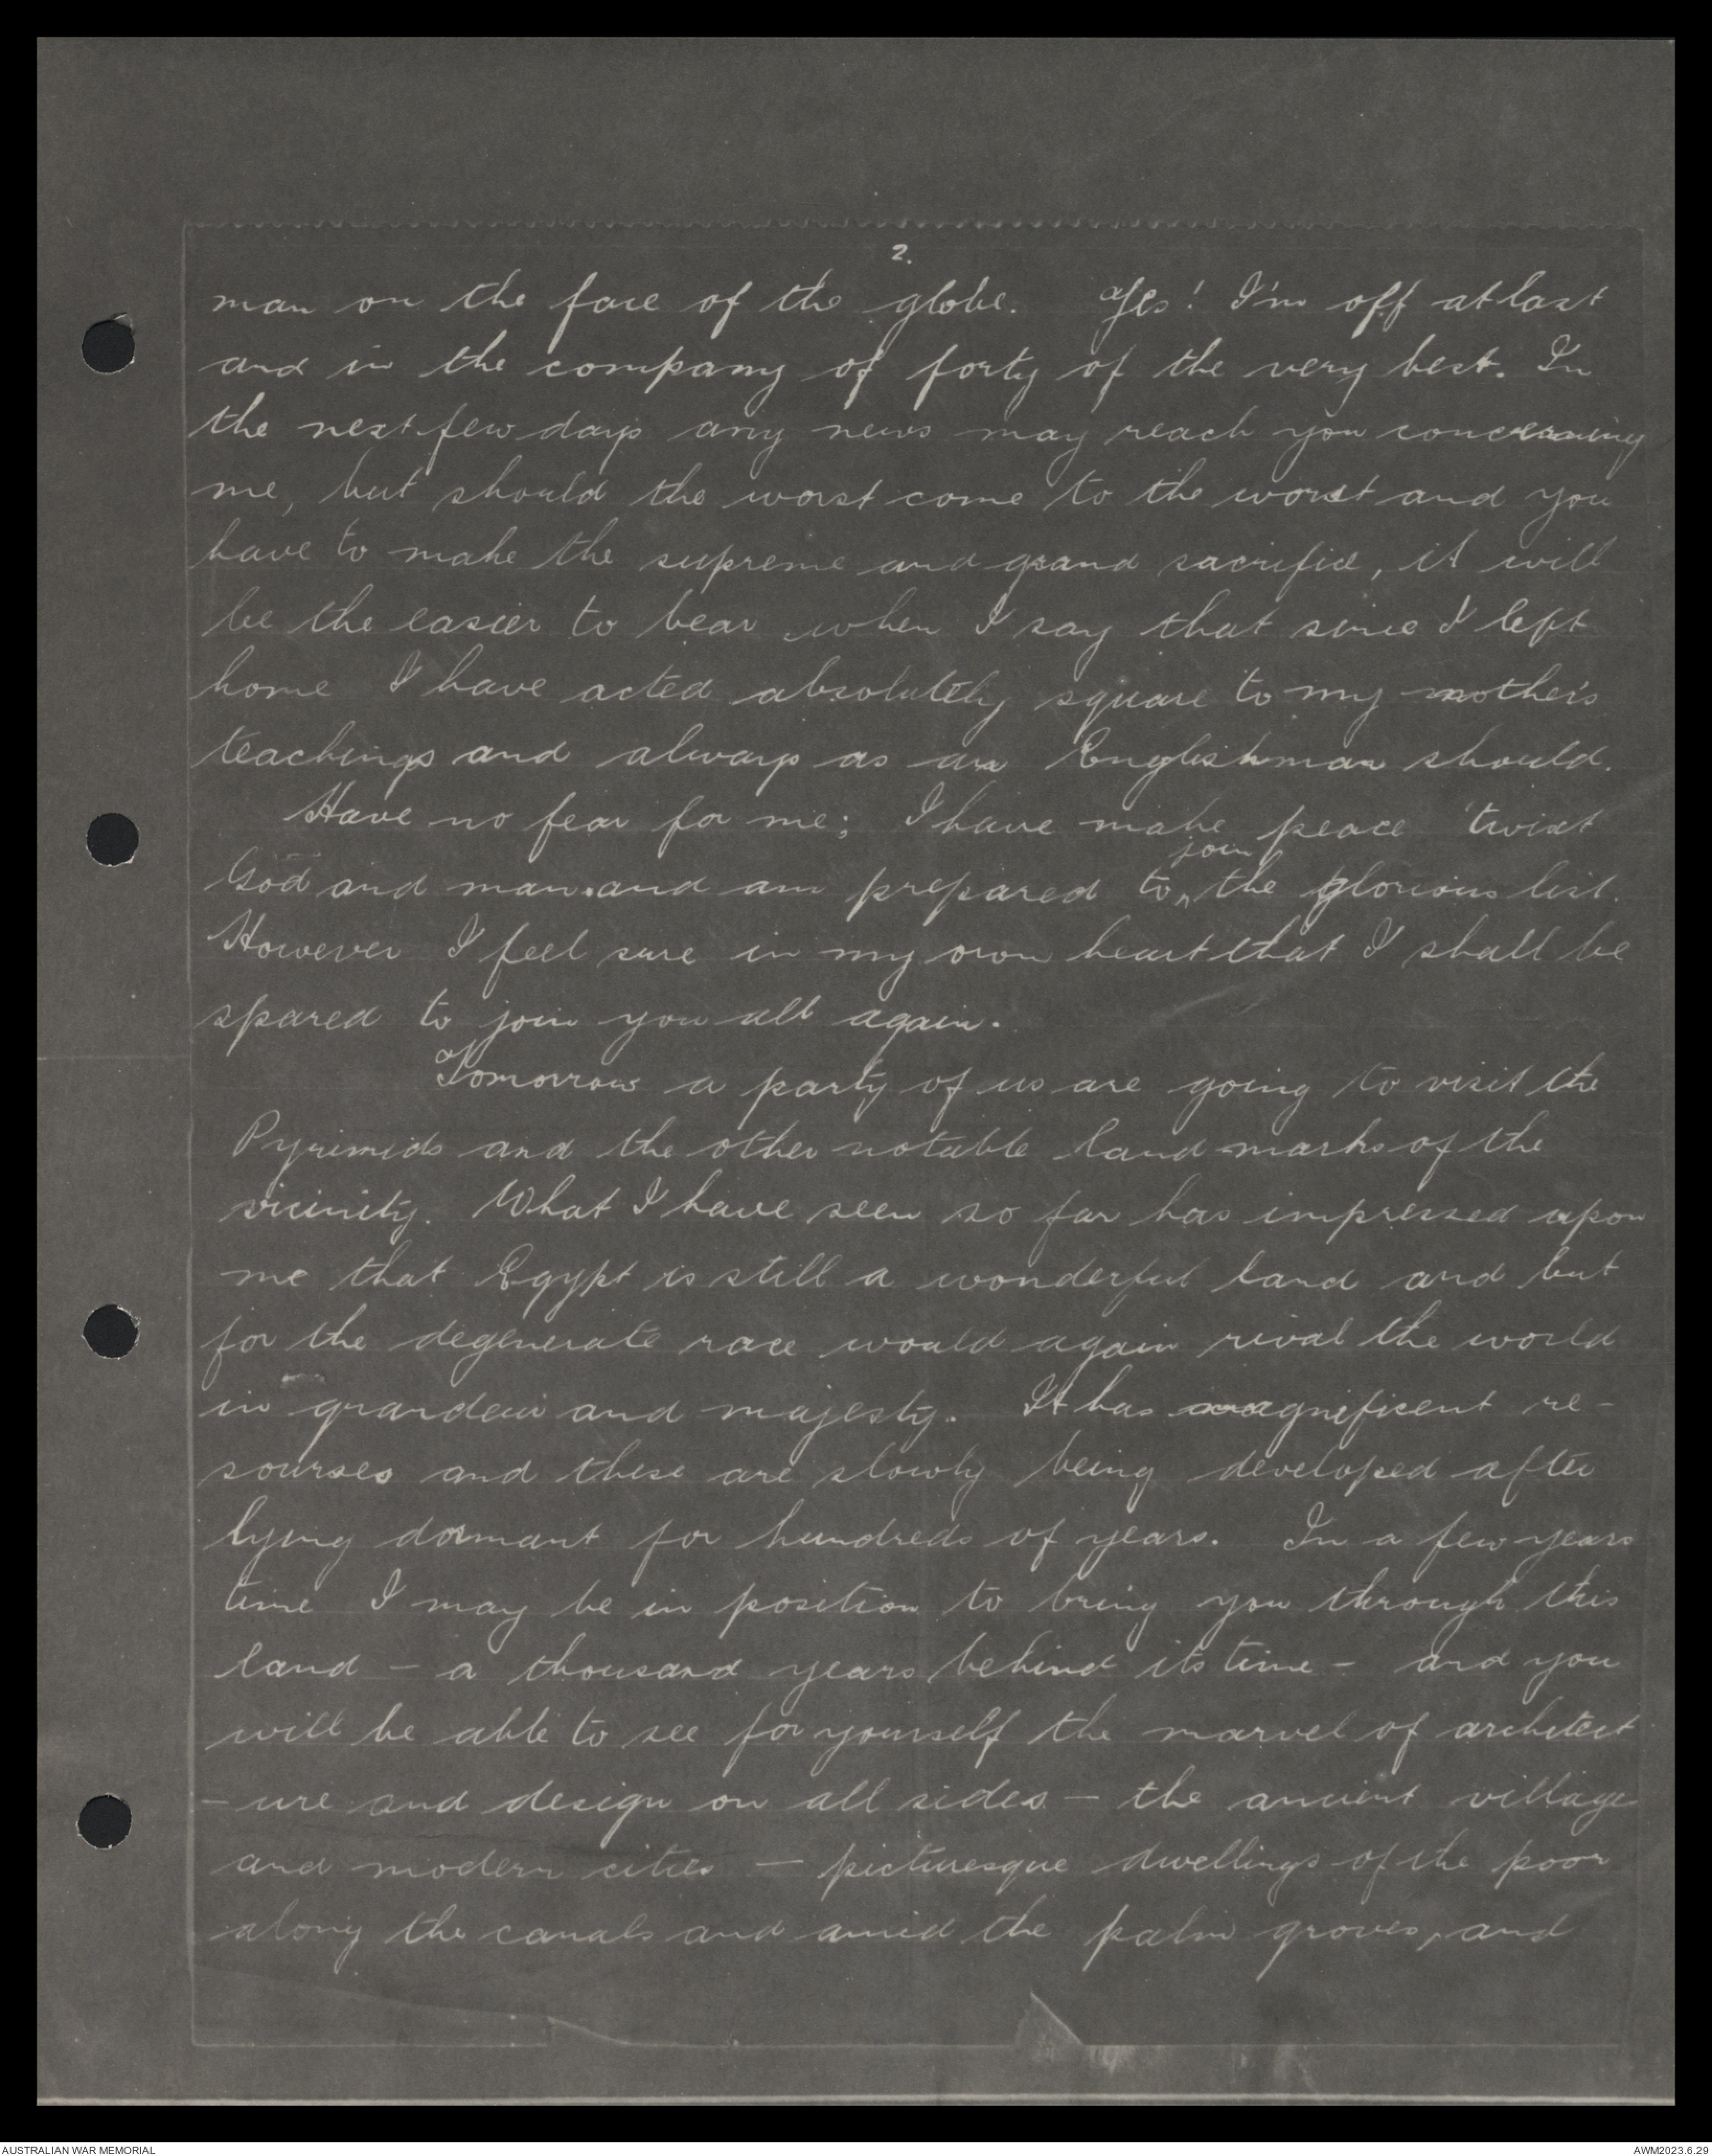 2.
man on the face of the globe. Yes! I'm off at last
and in the company of forty of the very best. In
the next few days any news may reach you concerning
me, but should the worst come to the worst and you
have to make the supreme and grand sacrifice, it will
be the easier to bear when I say that since I left
home I have acted absolutely square to my mother's
teachings and always as an Englishman should.
Have no fear for me; I have make peace 'twixt
join
God and man and am prepared to the glorious list.
However I feel sure in my own heart that I shall be
spared to join you all again.
Tomorrow a party of us are going to visit the
Pyrimids and the other notable land marks of the
vicinity. What I have seen so far has impressed upon
me that Egypt is still a wonderful land and but
for the degenerate race would again rival the world
in grandeur and majesty. It has magnificent re-
sourses and these are slowly being developed after
lying dormant for hundreds of years. In a few years
time I may be in position to bring you through this
land - a thousand years behind its time - and you
will be able to see for yourself the marvel of architect
- ure and design on all sides - the ancient village
and modern cities - picturesque dwellings of the poor
along the canals and amid the palm groves, and
AUSTRALIAN WAR MEMORIAL
AWM2023.6.29